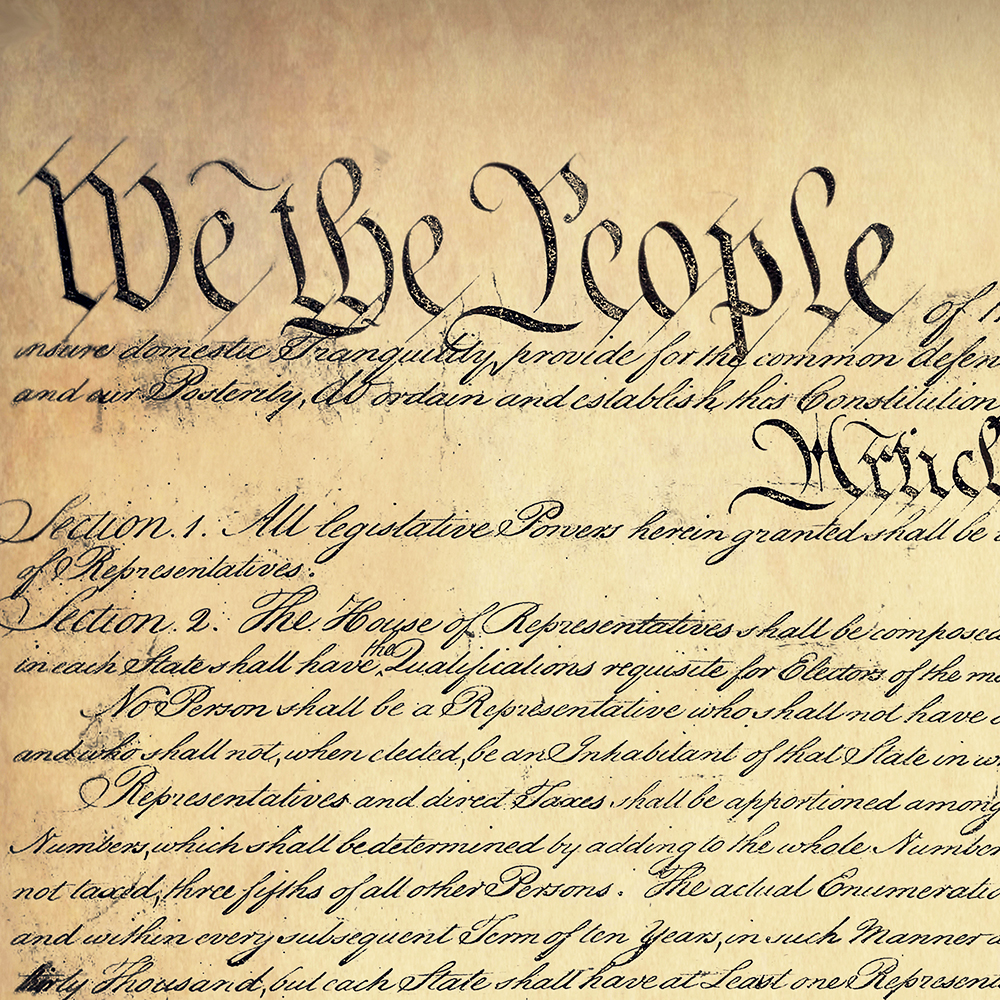 We the People of
insure domestic Tranquility, provide for the common defen
and our Posterity, do ordain and establish this Constitution
Articl
Section. 1. All legislative Powers herein granted shall be
of Representatives.
Section. 2. The House of Representatives shall be composed
in each State shall have the Qualifications requisite for Electors of the mo
No Person shall be a Representative who shall not have a
and who shall not, when elected, be an Inhabitant of that State in w
Representatives and direct Taxes shall be apportioned among
Numbers, which shall be determined by adding to the whole Number
not taxed, three fifths of all other Persons. The actual Enumeratio
and within every subsequent Term of ten Years, in such Manner a
thirty Thousand, but each State shall have at Least one Represen